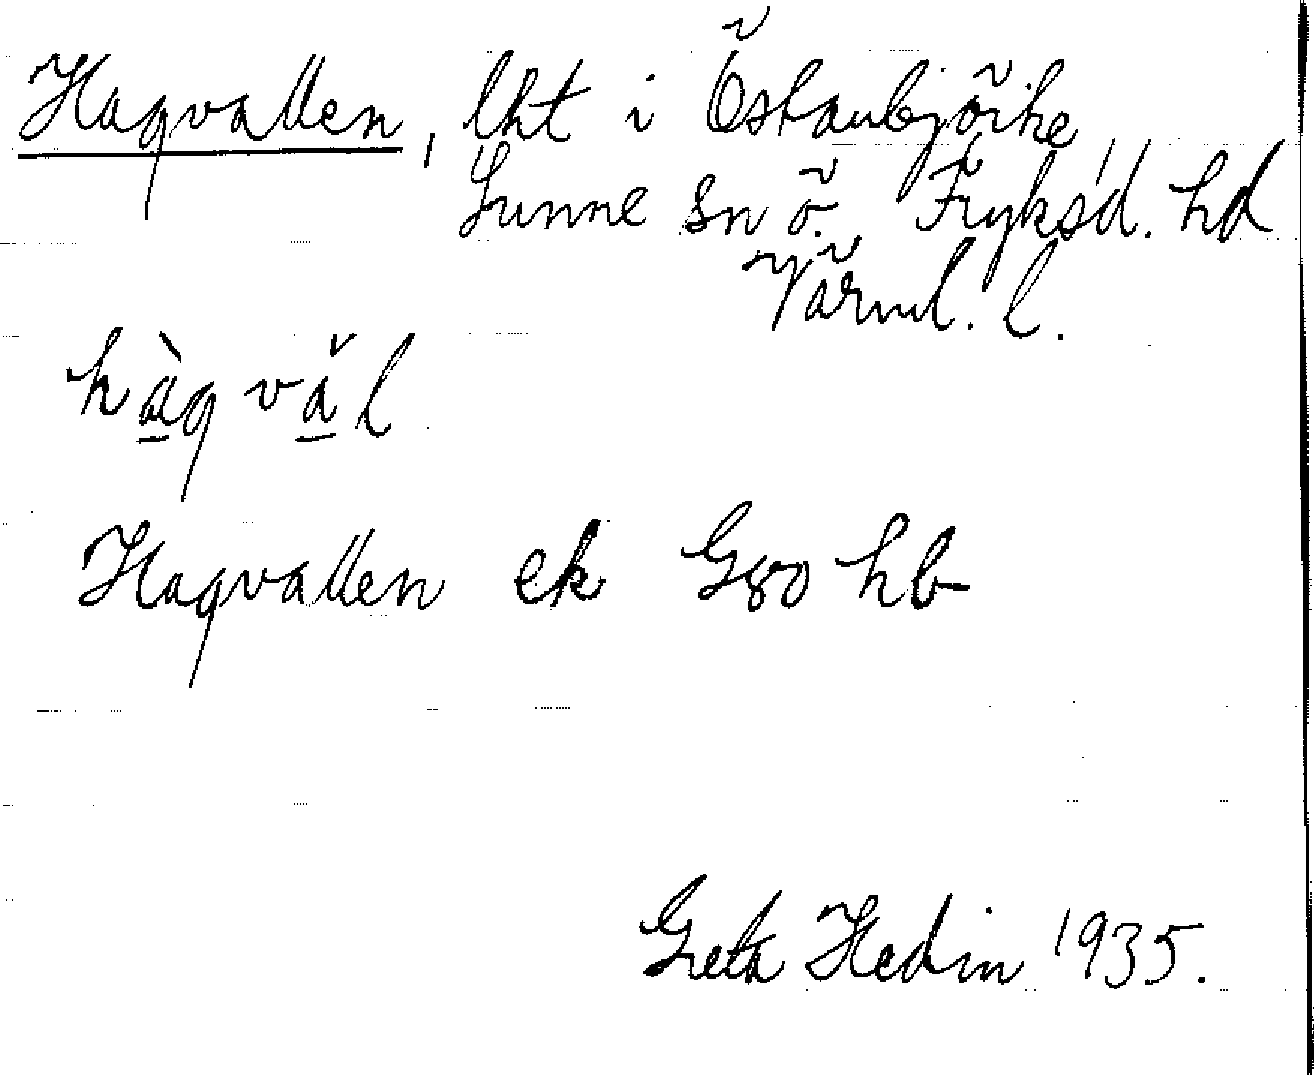 Hagvallen, lht i Östanbjörke
Sunne sn ö. Fryksd. hd
Värml. l.
hàg văl
Hagvallen ek G80 hb
Greta Hedin 1935.